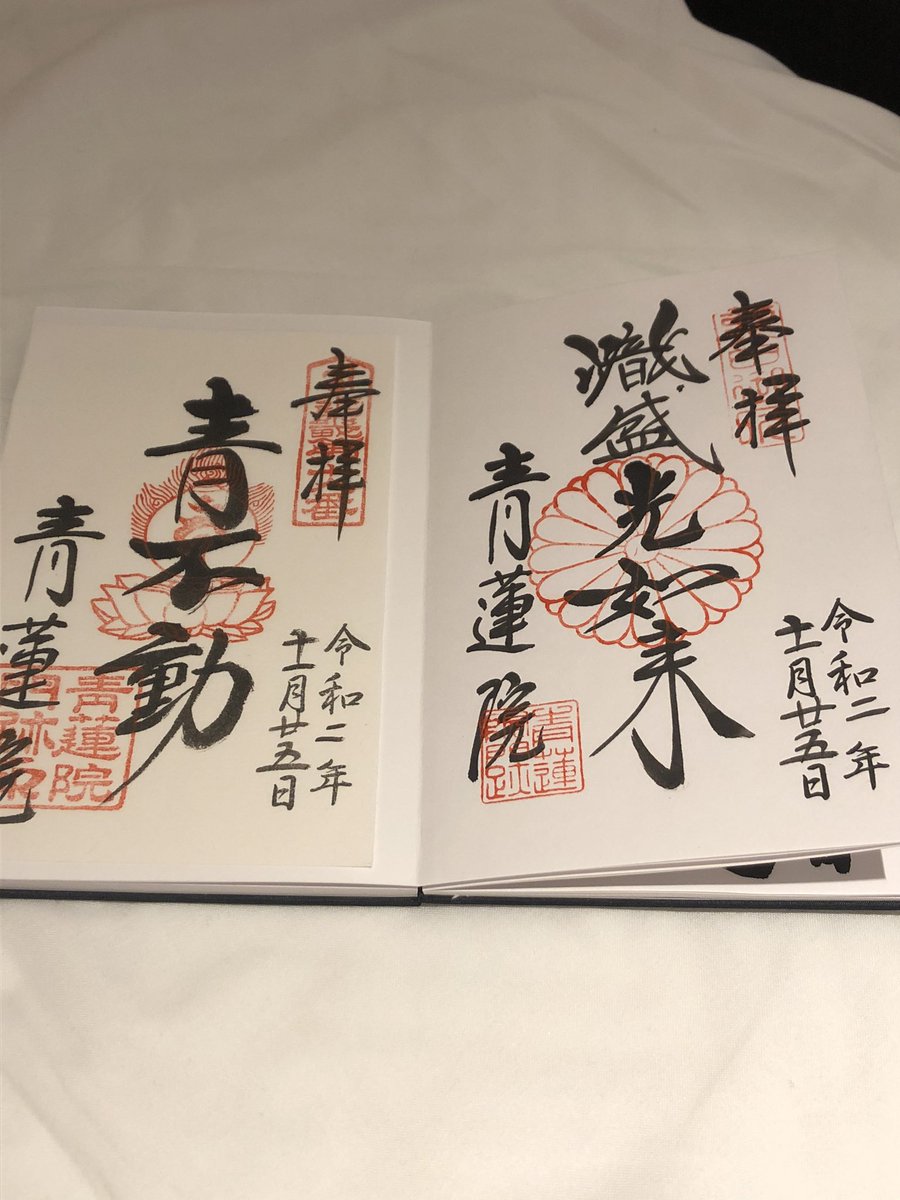 奉拝
令和二年
十一月廿五日
熾盛光如来
青蓮院
青蓮
奉拝
令和二年
十一月廿五日
青不動
青蓮院
青蓮院